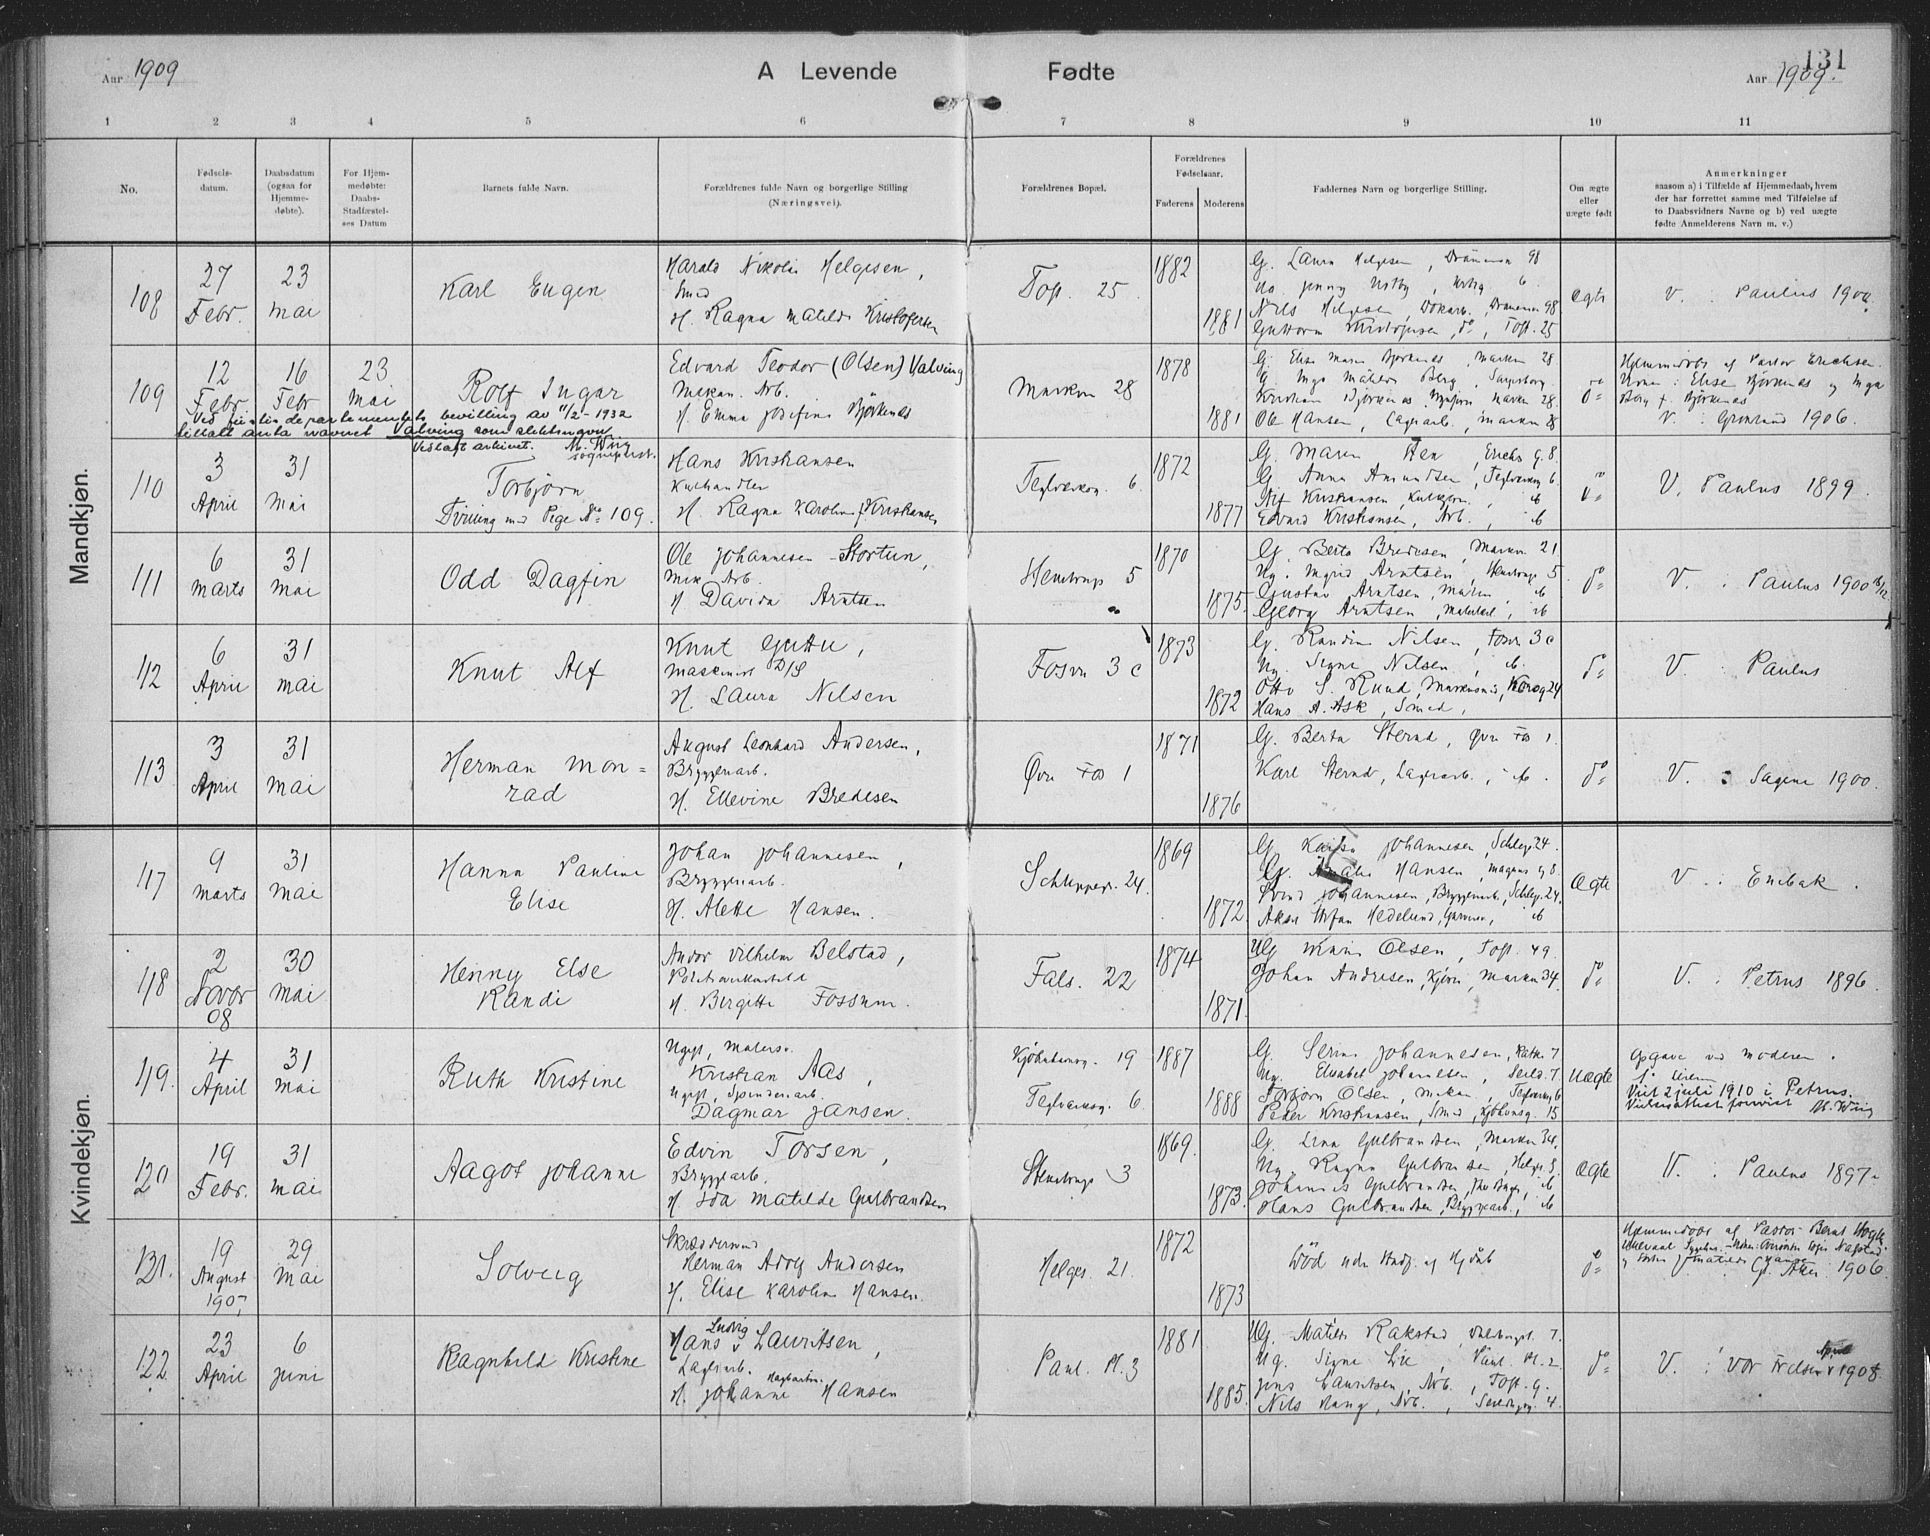 Aar 1909
A Levende Fødte
131
Aar 1909.
1 2 3 4 5 6 7 8 9 10 11
No.
Fødsels-
datum.
Daabsdatum
(ogsaa for
Hjemme-
døbte).
For Hjem-
medøbte:
Daabs-
Stadfæstel-
ses Datum
Barnets fulde Navn.
Forældrenes fulde Navn og borgerlige Stilling
(Næringsvei).
Forældrenes Bopæl.
Forældrenes
Fødselsaar.
Faderens Moderens
Faddernes Navn og borgerlige Stilling.
Om ægte
eller
uægte født
Anmerkninger
saasom a) i Tilfælde af Hjemmedaab, hvem
der har forrettet samme med Tilføielse af
to Daabsvidners Navne og b) ved uægte
fødte Anmelderens Navn m. v.)
Mandkjøn.
108
27
Febr.
23
Mai
Karl Eugen
Harald Nikolai Helgesen,
Smed
H. Ragna Matilde Kristofersen
Toft. 25
1882
1881
G. Laura Helgesen, Drammensv 98
Nils Helgesen, Dokarb., Drammensv 98
Guttorm Kristofersen, do, Toft. 25
Ægte
V. : Paulus 1900
109
12
Febr
16
Febr
23
Mai
Rolf Ingar
Edvard Teodor (Olsen) Valving
Mekan. Arb.
H. Emma Josefine Bjørkenes
Markvn 28
1878
1881
G. Elise Marie Bjørkenes, Markvn 28
G. Inga Matilde Berg, Sarpsborg
Kristian Bjørkenes, Markvn 28
Ole Hansen, Lagerarb., Markvn 28
do
Hjemmedøbt af Pastor Erichsen
Vidner: Elise Bjørkenes og Inga
Berg f. Bjørkenes
V. : Grønland 1906.
Ved justisdepartementets bevilling av 11/2-1932
tillatt anta navnet Valving som slektsnavn
Vedlagt arkivet. M. Wiig
sogneprest.
110
3
April
31
Mai
Torbjørn
Tvilling med Pige No 109.
Hans Kristiansen
Kulhandler
H. Ragna Karoline f. Kristiansen
Teglverksg. 6
1872
1877
G. Maren Steen, Erichs g. 8.
G. Anna Amundsen, Teglverksg 6.
Alf Kristiansen, Kulkjører, ib
Edvard Kristiansen, Arb., ib
do
V. Paulus 1899.
111
6
Marts
31
Mai
Odd Dagfin
Ole Johannesen Stortun,
Mek. Arb.
H. Davida Arntsen
Stenstrups 5
1870
1875.
G. Berta Bredesen, Markvn 21
Ug. Ingrid Arntsen, Stenstrupsg 5.
Gustav Arntsen, Maler, ib
Georg Arntsen, ib
do
V. : Paulus 1900 16/12
112
6
April
31
Mai
Knut Alf
Knut Guttu,
Maskinist D/S
H. Laura Nilsen
Fosvn 3 c
1873
1872
G. Randine Nilsen, Fosvn 3 c
Ug. Signe Nilsen, ib.
Otto S. Ruud, Korsg 24
Hans A. Ask, Smed,
do
V. : Paulus
113
3
April
31
Mai
Herman Mon=
rad
August Leonhard Andersen,
Bryggeriarb.
H. Ellevine Bredesen
Øvre Fos 1
1871
1876
G. Berta Sternd, Øvre Fos 1.
Karl Sternd, Lagerarb., ib.
do
V. : Sagene 1900.
Kvindekjøn.
117
9
Marts
31
Mai
Hanna Pauline
Elise
Johan Johannesen,
Bryggeriarb.
H. Alette Hansen.
Schleppegr. 24.
1869
1872.
G. Kaisa Johannesen, Schlepgr 24.
G. Amalie Hansen, Magnus g 8.
Svend Johannesen, Bryggeriarb, Schlepgr. 24
Aksel Stefan Hedelund, Garver, ib
Ægte
V. : Enebak.
118
2
Novbr
08
30
Mai
Henny Else
Randi
Andor Vilhelm Belstad,
Politikonstabel
H. Bergitte Fossum.
Fals. 22
1874
1871.
Ug. Marie Olsen, Toft. 49.
Johan Andresen, Kjører, Markvn 34.
do
V. : Petrus 1896.
119.
4
April
31
Mai
Ruth Kristine
Ugift, Malersv.
Kristian Aas,
Ugift, Spinderiarb.
Dagmar Jansen.
Kjøbenhavnsg. 19
Teglverksg. 6
1887
1888
G. Serine Johannesen, 7
Ug. Elisabet Johannesen, Seild. 7.
Torbjørn Olsen, Mekan., Teglverksg 6
Peder Kristiansen, Smed, Kjøbhvnsg. 15
Uægte
Opgave ved Moderen.
Viet 2 juli 1910 i Petrus.
M. Wiig
120
19
Febr.
31
Mai
Aagot Johanne
Edvin Torsen,
Bryggeriarb.
H. Ida Matilde Gulbrandsen
Stenstrups 3
1869.
1873.
G. Lina Gulbrandsen, Markvn 34,
Ug. Ragna Gulbransen, Helges 3.
Johannes Gulbrandsen, ib
Hans Gulbrandsen, Bryggeriarb., ib
Ægte
V. : Paulus 1897.
121.
19
August
1907
29
Mai
Solveig
Skræddersvend
Herman Adolf Andersen
H. Elise Karoline Hansen.
Helges 21.
1872
1873
Død uden Stadf. af Hjdåb
do
Hjemmedøbt af Pastor Bernt Hogh
Ullevaal Sygehus.
G. Aker 1906.
122.
23
April
6
Juni
Ragnhild Kristine
Hans Ludvig Lauritsen,
Lagerarb.
H. Johanne Hagbartine Hansen
Paul. Pl. 3
1881
1885.
Ug. Matilde Rakstad, 7.
Ug. Signe Lie, Paul. Pl. 2
Jens Lauritsen, Arb., Toft. 9.
Nils Haug, Arb., 4.
do
V. : Vor Frelser 1908.